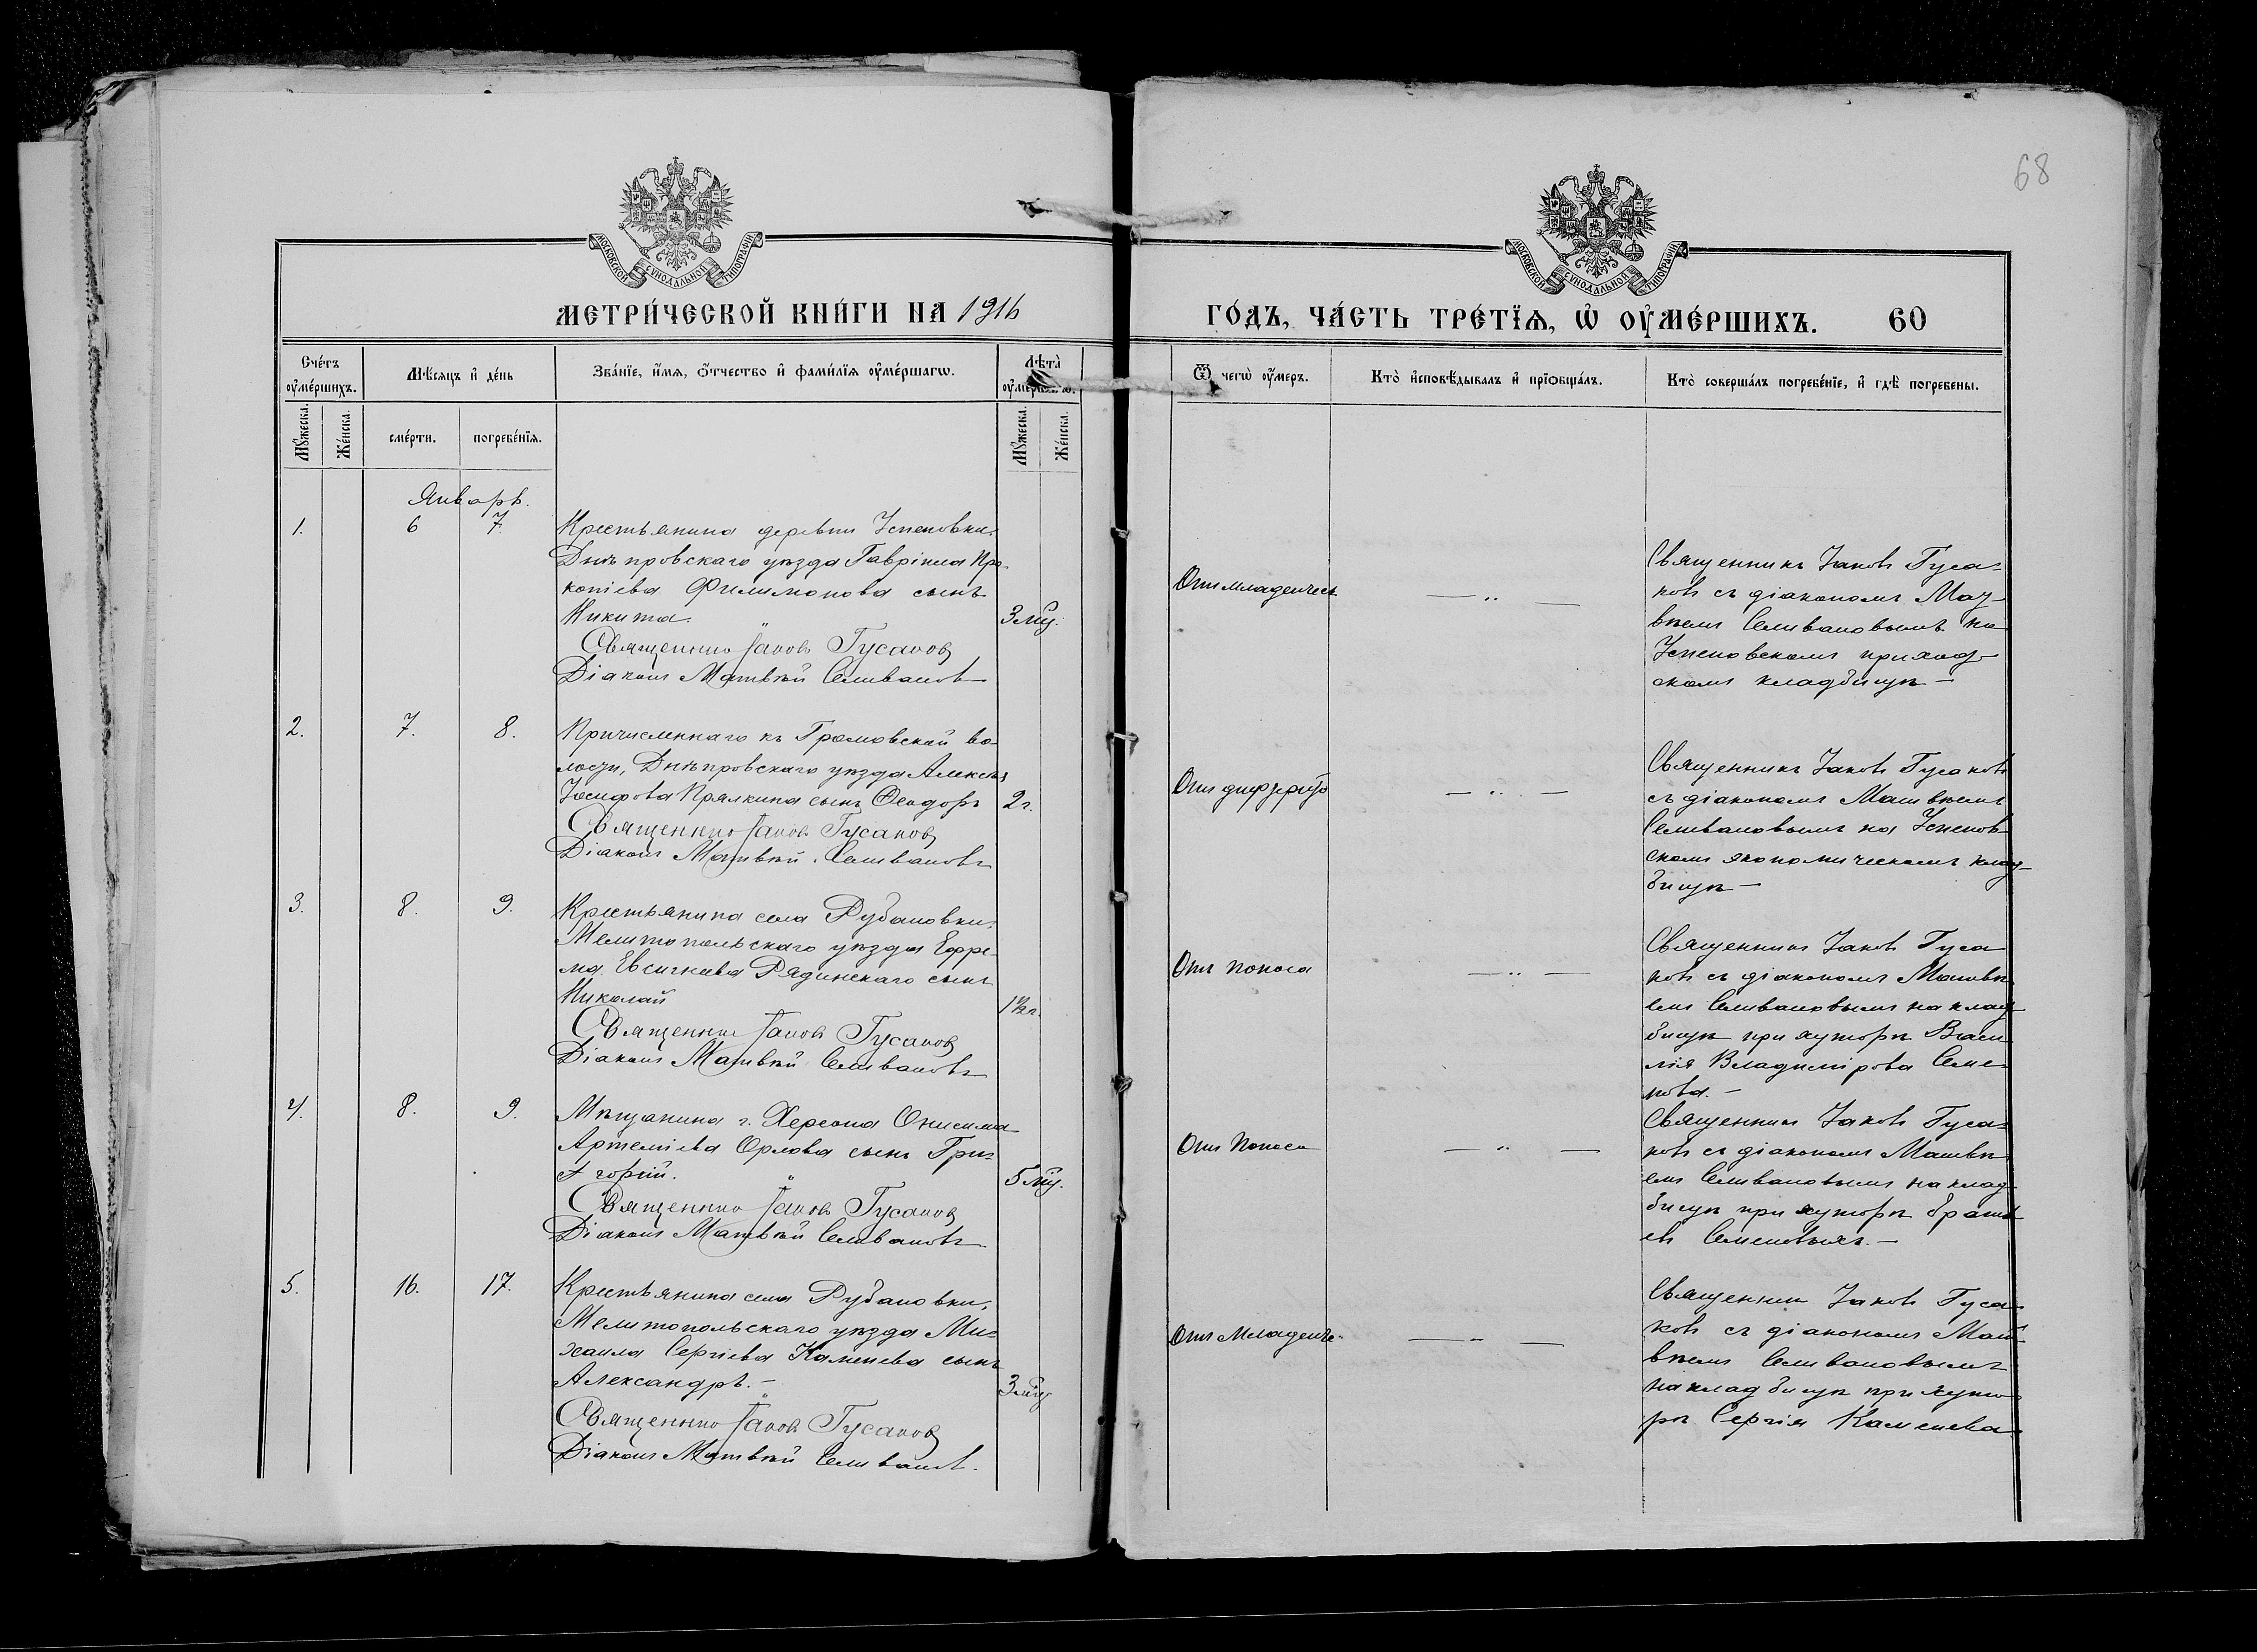 68
МОСКОВСКОЙ СѴНОДАЛЬНОЙ ТИПОГРАФІИ
МОСКОВСКОЙ СѴНОДАЛЬНОЙ ТИПОГРАФІИ
МЕТРИ́ЧЕСКОЙ КНИ́ГИ НА 1916
ГО́ДЪ, ЧА́СТЬ ТРЕ́ТЇѦ, Ѡ҆ ОУ҆МЕ́РШИХЪ. 60
Сче́тъ оу҆ме́ршихъ.
Мѣ́сяцъ и҆ де́нь
Зва́нїе, и҆́мя, ѻ҆́тчество и҆ фами́лїя оу҆ме́ршагѡ.
Лѣта̀ оу҆ме́ршагѡ.
Ѿ чегѡ̀ оу҆́меръ.
Кто̀ и҆сповѣ́дывалъ и҆ прїѻбща́лъ.
Кто̀ соверша́лъ погребе́нїе, и҆ гдѣ̀ погребены.
Мꙋ́жеска.
Же́нска.
сме́рти.
погребе́нїя.
Мꙋ́жеска.
Же́нска.
Январь.
1. 6 7. Крестьянина деревни Успеновки
Днѣпровскаго уѣзда Гавріила Про-
копіева Филимонова сынъ
Никита. 3 мц.
Священникъ Іаковъ Гусаковъ
Діаконъ Матвѣй Селивановъ
Отъ младенческ
— „ —
Священникъ Іаковъ Гуса-
ковъ съ діакономъ Мат-
вѣемъ Селивановымъ на
Успеновскомъ приход-
скомъ кладбищѣ —
2. 7. 8. Причисленнаго къ Громовской во-
лости, Днѣпровскаго уѣзда Алексѣя
Іосифова Прялкина сынъ Ѳеодоръ 2 г.
Священникъ Іаковъ Гусаковъ
Діаконъ Матвѣй Селивановъ
Отъ дифтерита
— „ —
Священникъ Іаковъ Гусаковъ
съ діакономъ Матвѣемъ
Селивановымъ на Успенов
скомъ экономическомъ клад-
бищѣ —
3. 8. 9. Крестьянина села Рубановки,
Мелитопольскаго уѣзда Ефре-
ма Евсигнева Рядинскаго сынъ
Николай 1½ г.
Священникъ Іаковъ Гусаковъ
Діаконъ Матвѣй Селивановъ
Отъ поноса
— „ —
Священникъ Іаковъ Гуса
ковъ съ діакономъ Матвѣ
емъ Селивановымъ на клад-
бищѣ при хуторѣ Васи
лія Владимірова Семе-
нова. —
4. 8. 9. Мѣщанина г. Херсона Онисима
Артеміева Орлова сынъ Гри-
горій. 5 мц.
Священникъ Іаковъ Гусаковъ
Діаконъ Матвѣй Селивановъ
Отъ поноса
— „ —
Священникъ Іаковъ Гуса-
ковъ съ діакономъ Матвѣ
емъ Селивановымъ на клад-
бищѣ при хуторѣ брать
евъ Семеновыхъ. —
5. 16. 17. Крестьянина села Рубановки,
Мелитопольскаго уѣзда Ми-
хаила Сергіева Каменева сынъ
Александръ. — 3 мц
Священникъ Іаковъ Гусаковъ
Діаконъ Матвѣй Селивановъ.
Отъ младенче-
— „ —
Священникъ Іаковъ Гуса-
ковъ съ діакономъ Мат-
вѣемъ Селивановымъ
на кладбищѣ при хуто-
рѣ Сергія Каменева